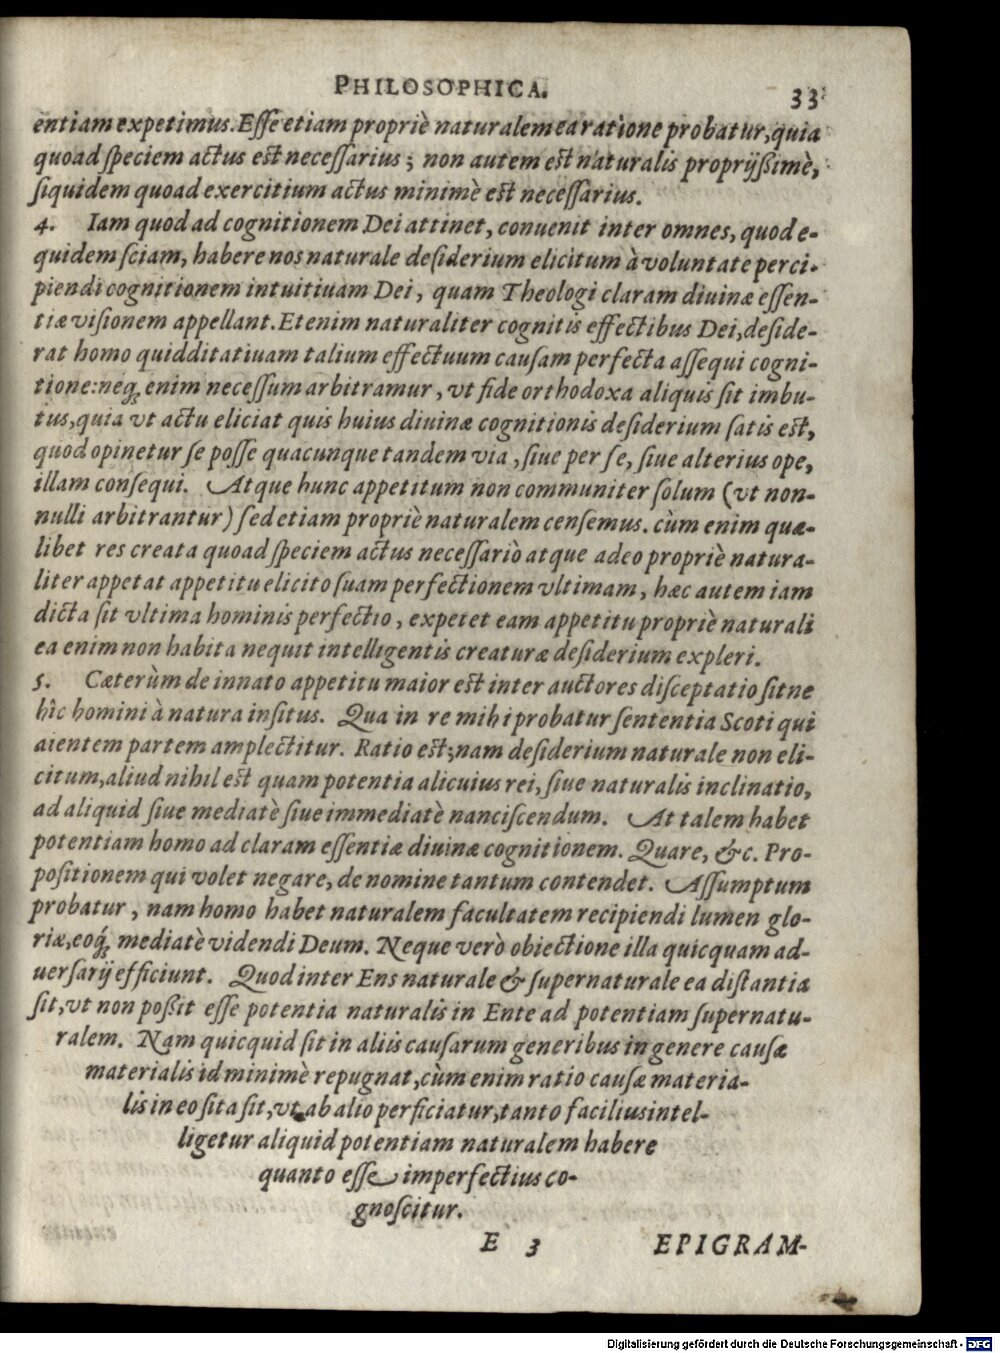 PHILOSOPHICA.
33
entiam expetimus. Esse etiam propriè naturalem ea ratione probatur, quia
quoad speciem actus est necessarius; non autem est naturalis proprijßimè,
siquidem quoad exercitium actus minimè est necessarius.
4. Iam quod ad cognitionem Dei attinet, conuenit inter omnes, quod e-
quidem sciam, habere nos naturale desiderium elicitum à voluntate perci-
piendi cognitionem intuitiuam Dei, quam Theologi claram diuinæ essen-
tiæ visionem appellant. Etenim naturaliter cognitis effectibus Dei, deside-
rat homo quidditatiuam talium effectuum causam perfecta assequi cogni-
tione: neq; enim necessum arbitramur, vt fide orthodoxa aliquis sit imbu-
tus, quia vt actu eliciat quis huius diuinæ cognitionis desiderium satis est,
quod opinetur se posse quacunque tandem via, siue per se, siue alterius ope,
illam consequi. Atque hunc appetitum non communiter solum (vt non-
nulli arbitrantur) sed etiam propriè naturalem censemus. cùm enim quæ-
libet res creata quoad speciem actus necessariò atque adeo propriè natura-
liter appetat appetitu elicito suam perfectionem vltimam, hæc autem iam
dicta sit vltima hominis perfectio, expetet eam appetitu propriè naturali
ea enim non habita nequit intelligentis creaturæ desiderium expleri.
5. Cæterùm de innato appetitu maior est inter auctores disceptatio sitne
hîc homini à natura insitus. Qua in re mihi probatur sententia Scoti qui
aientem partem amplectitur. Ratio est; nam desiderium naturale non eli-
citum, aliud nihil est quam potentia alicuius rei, siue naturalis inclinatio,
ad aliquid siue mediatè siue immediatè nanciscendum. At talem habet
potentiam homo ad claram essentiæ diuinæ cognitionem. Quare, &c. Pro-
positionem qui volet negare, de nomine tantum contendet. Assumptum
probatur, nam homo habet naturalem facultatem recipiendi lumen glo-
riæ, eoq́; mediatè videndi Deum. Neque verò obiectione illa quicquam ad-
uersarij efficiunt. Quod inter Ens naturale & supernaturale ea distantia
sit, vt non poßit esse potentia naturalis in Ente ad potentiam supernatu-
ralem. Nam quicquid sit in aliis causarum generibus in genere causæ
materialis id minimè repugnat, cùm enim ratio causæ materia-
lis in eo sita sit, vt ab alio perficiatur, tanto facilius intel-
ligetur aliquid potentiam naturalem habere
quanto esse imperfectius co-
gnoscitur.
E 3
EPIGRAM-
Digitalisierung gefördert durch die Deutsche Forschungsgemeinschaft - DFG